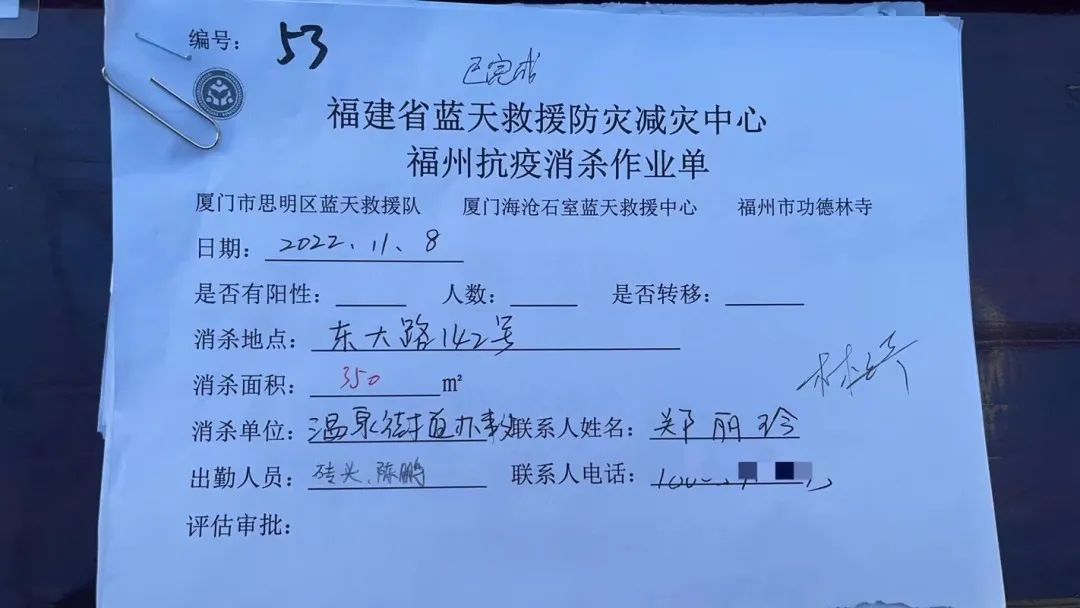 编号: 53
已完成
福建省蓝天救援防灾减灾中心
福州抗疫消杀作业单
厦门市思明区蓝天救援队 厦门海沧石室蓝天救援中心 福州市功德林寺
日期: 2022.11.8
是否有阳性: 人数: 是否转移:
消杀地点: 东大路142号
消杀面积: 350 ㎡
消杀单位: 温泉街道办事处 联系人姓名: 郑丽玲
出勤人员: 砖头、陈鹏 联系人电话:
评估审批: